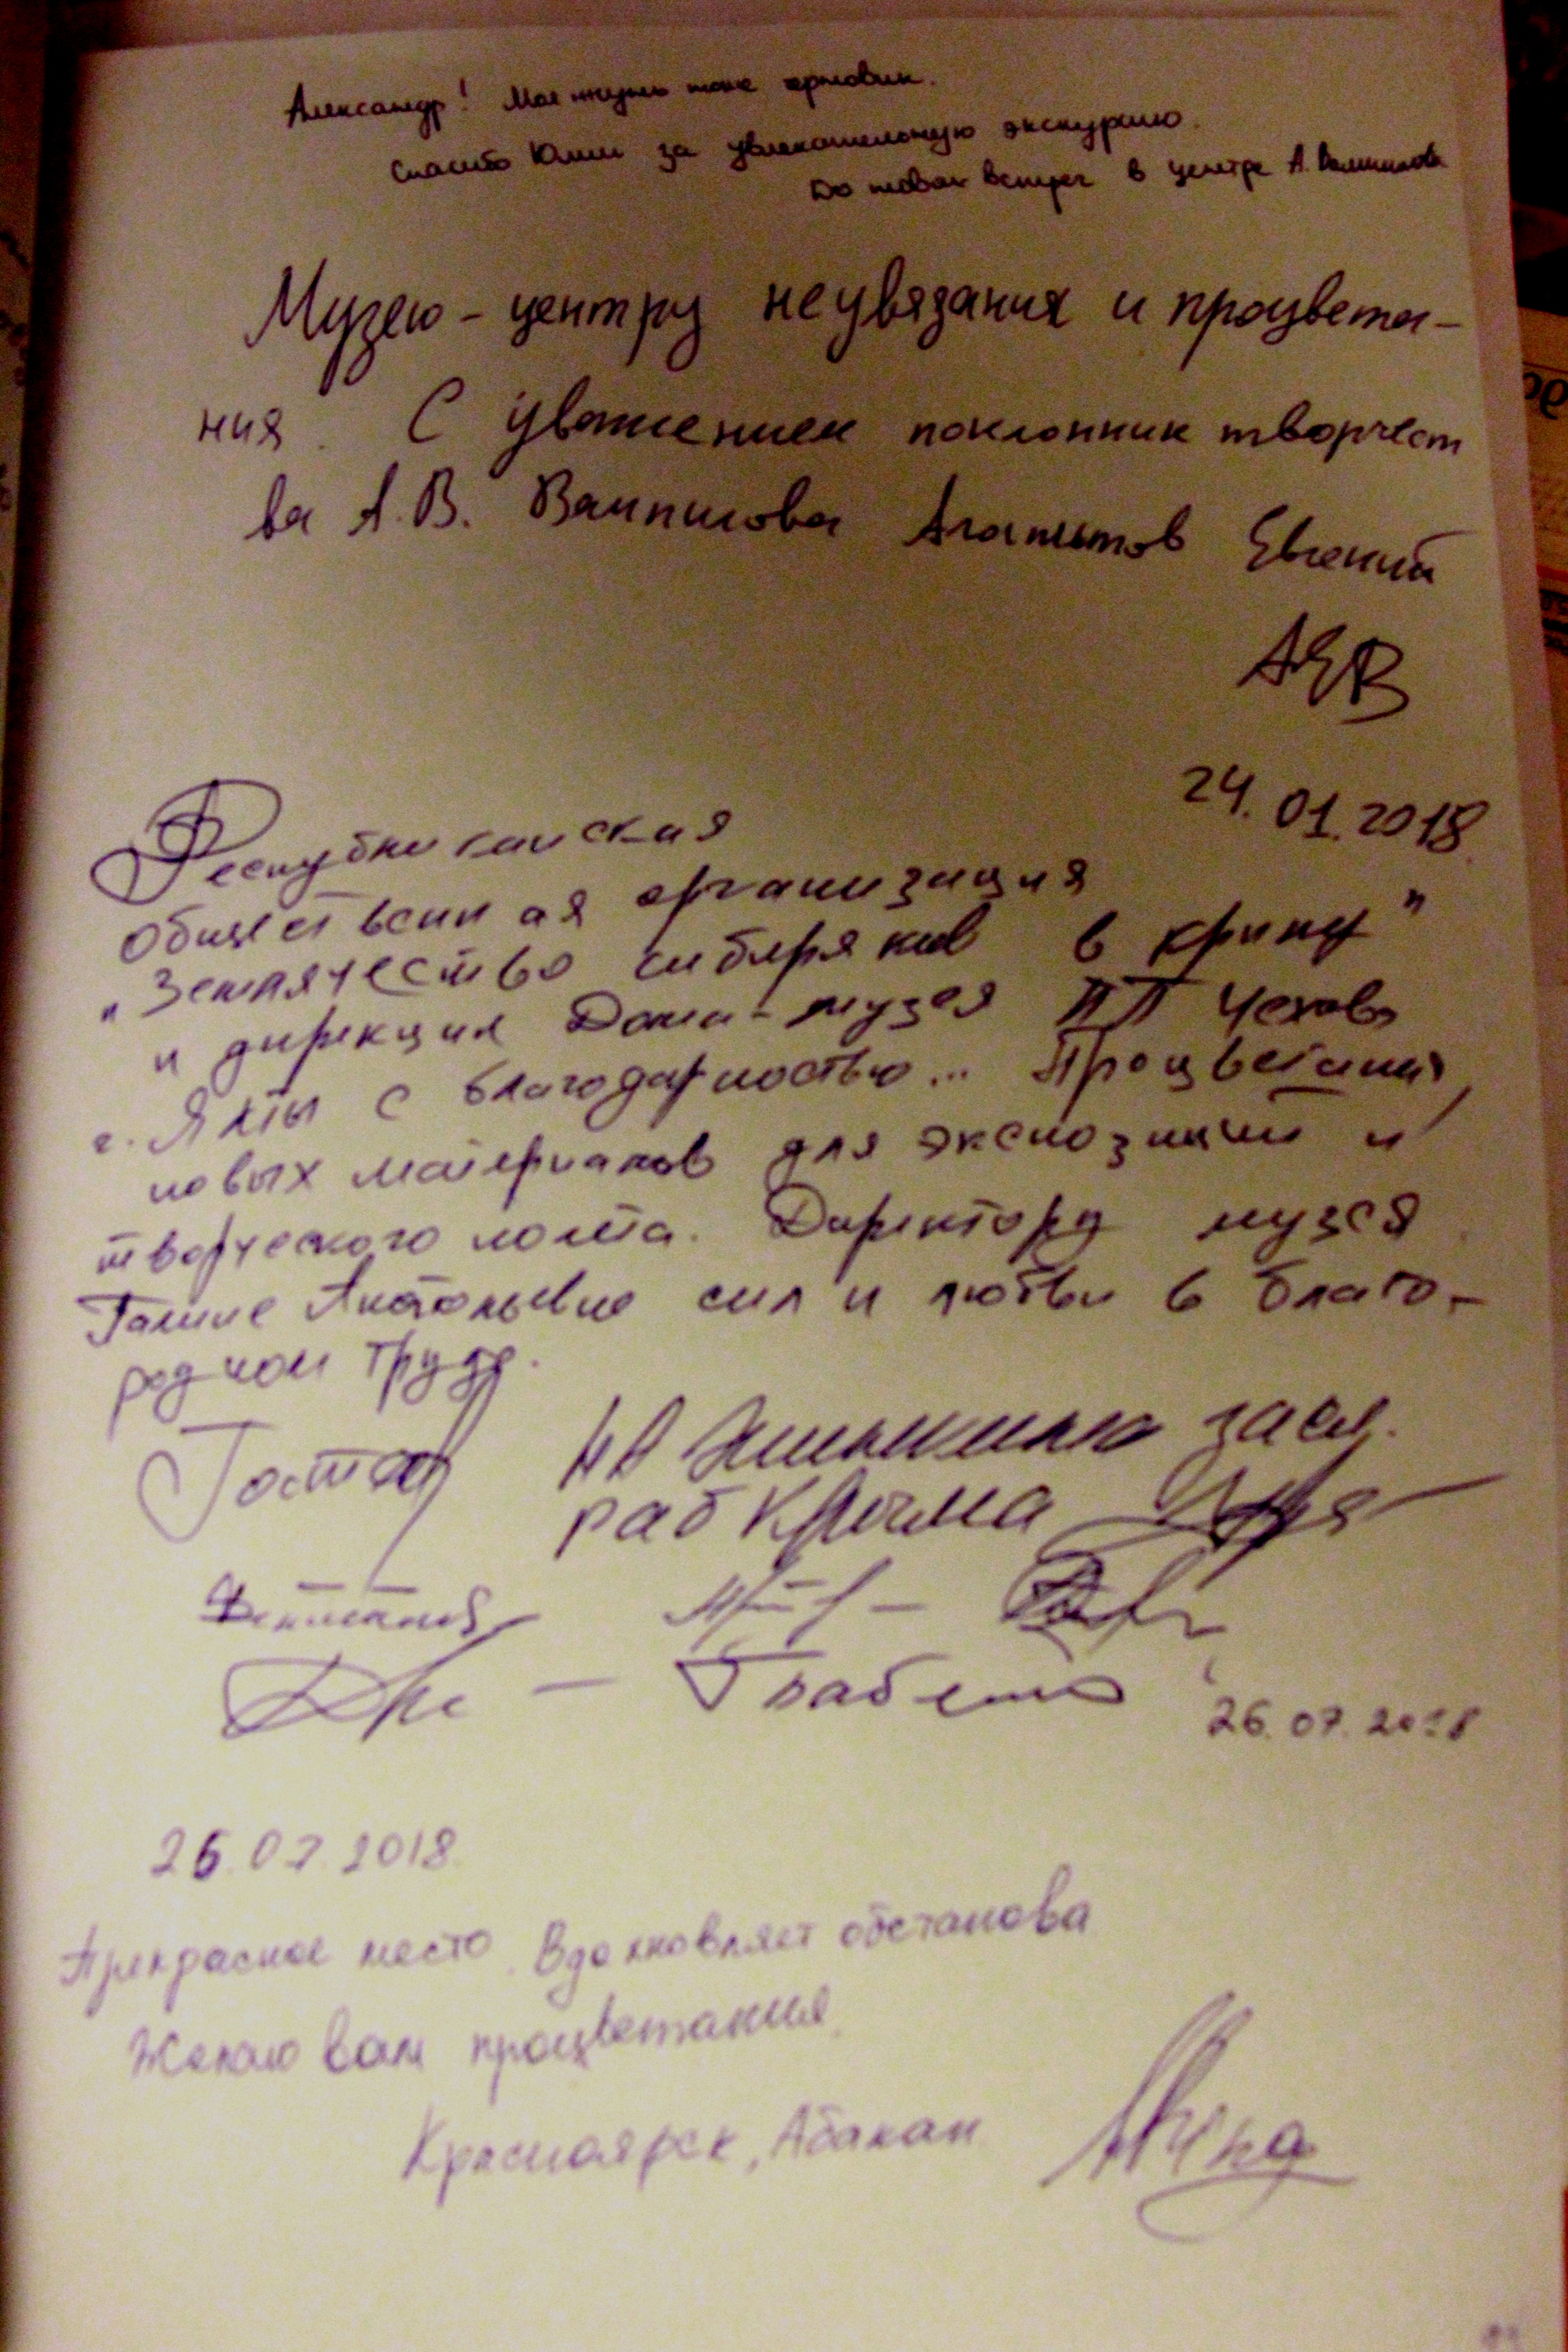 Александр!
Спасибо Юлии за увлекательную экскурсию.
До новых встреч в центре А. Вампилова
Музею-центру неувязания и процвета-
ния. С уважением поклонник творчест
ва А.В. Вампилова Агапитов Евгений
АЕВ
24.01.2018
Республиканская
Общественная организация
"Землячество сибиряков в Крыму"
и дирекция Дома-музея АП Чехова
г. Ялты с благодарностью... Процветания,
новых материалов для экспозиций и
творческого полёта. Директору музея
Галине Анатольевне сил и любви в благо-
родном труде.
засл.
раб Крыма
26.07.2018
26.07.2018
Прекрасное место. Вдохновляет обстанова
Желаю вам процветания.
Красноярск, Абакан